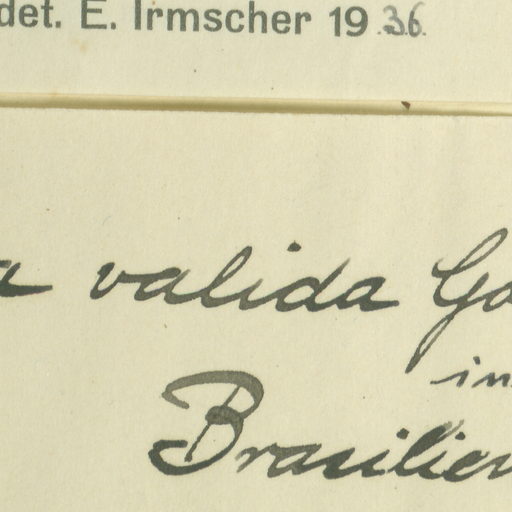 det. E. Irmscher 19 36.
a valida Go
in
Brasilien